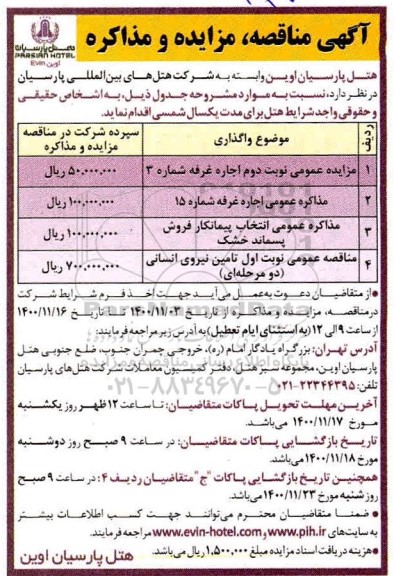 آگهی مناقصه، مزایده و مذاکره
هتل پارسیان
PARSIAN HOTEL
اوین Evin
هتل پارسیان اوین وابسته به شرکت هتل‌های بین‌المللی پارسیان
در نظر دارد، نسبت به موارد مشروحه جدول ذیل، به اشخاص حقیقی
و حقوقی واجد شرایط هتل برای مدت یکسال شمسی اقدام نماید.
ردیف
موضوع واگذاری
سپرده شرکت در مناقصه
مزایده و مذاکره
۱ مزایده عمومی نوبت دوم اجاره غرفه شماره ۳ ۵۰.۰۰۰.۰۰۰ ریال
۲ مذاکره عمومی اجاره غرفه شماره ۱۵ ۱۰۰.۰۰۰.۰۰۰ ریال
۳ مذاکره عمومی انتخاب پیمانکار فروش
پسماند خشک ۱۰۰.۰۰۰.۰۰۰ ریال
۴ مناقصه عمومی نوبت اول تامین نیروی انسانی
(دو مرحله‌ای) ۷۰۰.۰۰۰.۰۰۰ ریال
• از متقاضیان دعوت به عمل می‌آید جهت اخذ فرم شرایط شرکت
در مناقصه، مزایده و مذاکره از تاریخ ۱۴۰۰/۱۱/۰۳ تا تاریخ ۱۴۰۰/۱۱/۱۶
از ساعت ۹ الی ۱۲ (به استثنای ایام تعطیل) به آدرس زیر مراجعه فرمایند:
آدرس تهران: بزرگراه یادگار امام (ره)، خروجی چمران جنوب، ضلع جنوبی هتل
پارسیان اوین، مجموعه سبز هتل، دفتر کمیسیون معاملات شرکت هتل‌های پارسیان
تلفن: ۲۲۳۴۴۳۹۵-۰۲۱
۰۲۱-۸۸۳۴۹۶۷۰-۵
آخرین مهلت تحویل پاکات متقاضیان: تا ساعت ۱۲ ظهر روز یکشنبه
مورخ ۱۴۰۰/۱۱/۱۷ می‌باشد.
تاریخ بازگشایی پاکات متقاضیان: در ساعت ۹ صبح روز دوشنبه
مورخ ۱۴۰۰/۱۱/۱۸ می‌باشد.
همچنین تاریخ بازگشایی پاکات "ج" متقاضیان ردیف ۴: در ساعت ۹ صبح
روز شنبه مورخ ۱۴۰۰/۱۱/۲۳ می‌باشد.
• ضمنا متقاضیان محترم می‌توانند جهت کسب اطلاعات بیشتر
به سایت‌های www.pih.ir و www.evin-hotel.com مراجعه فرمایند.
• هزینه دریافت اسناد مزایده مبلغ ۱.۵۰۰.۰۰۰ ریال می‌باشد.
هتل پارسیان اوین